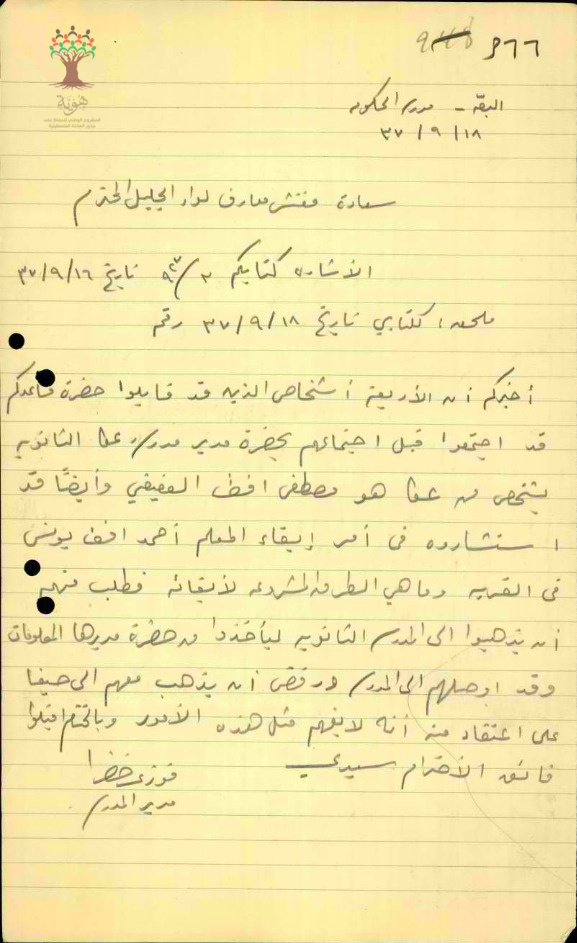 ٩٤٥ ٣٦٦
هوية
البقه - مدرسة الحكومه
٣٧/٩/١٨
سعادة مفتش معارف لواء الجليل المحترم
الأشاره كتابكم تاريخ ٣٧/٩/١٦
ملحقه: كتابي تاريخ ٣٧/٩/١٨ رقم
أخبركم أن الأربعة أشخاص الذين قد قابلوا حضرة
قد اجتمعوا قبل اجتماعهم بحضرة مدير مدرسة عكا الثانويه
بشخص من عكا هو مصطفى افندي العفيفي وأيضًا قد
استشاروه في أمر إبقاء المعلم أحمد افندي يونس
في القريه وما هي الطرق المشروعه لأبقائه فطلب منهم
أن يذهبوا الى المدرسة الثانويه ليأخذوا من حضرة مديرها المعلومات
وقد اوصلهم الى المدرسة ورفض أن يذهب معهم الى حيفا
على اعتقاد منه أنه لا يفهم مثل هذه الأمور وبالختام اقبلوا
فائق الأحترام سيدي
فوزي خضرا
مدير المدرسة